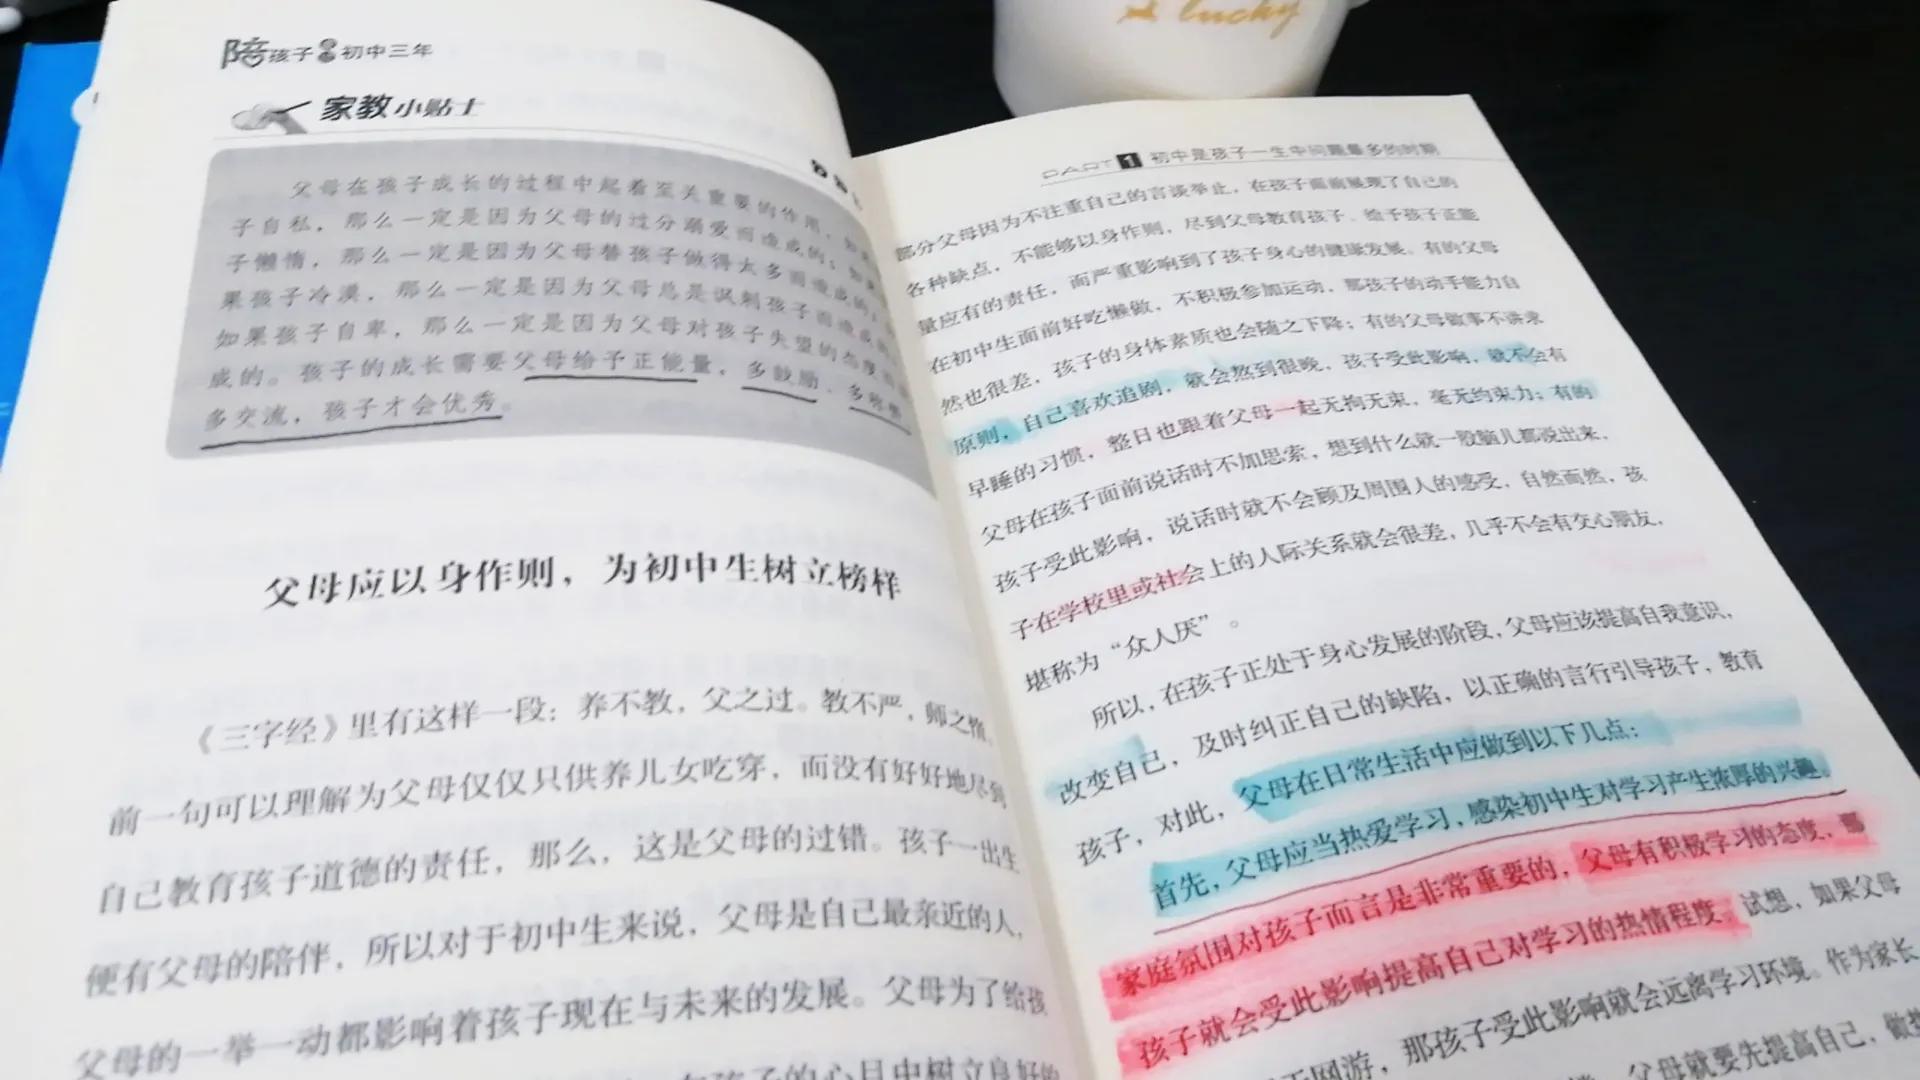 lucky
陪孩子 初中三年
家教小贴士
父母在孩子成长的过程中起着至关重要的作用,如
子自私,那么一定是因为父母的过分溺爱而造成的;如
子懒惰,那么一定是因为父母替孩子做得太多而造成的;
果孩子冷漠,那么一定是因为父母总是讽刺孩子而造成的
如果孩子自卑,那么一定是因为父母对孩子失望的态度
成的。孩子的成长需要父母给予正能量,多鼓励、多
多交流,孩子才会优秀。
父母应以身作则,为初中生树立榜样
《三字经》里有这样一段:养不教,父之过。教不严,师之惰。
前一句可以理解为父母仅仅只供养儿女吃穿,而没有好好地尽到
自己教育孩子道德的责任,那么,这是父母的过错。孩子一出生
便有父母的陪伴,所以对于初中生来说,父母是自己最亲近的人,
父母的一举一动都影响着孩子现在与未来的发展。父母为了给孩
在孩子的心目中树立良好的
PART 1 初中是孩子一生中问题最多的时期
部分父母因为不注重自己的言谈举止,在孩子面前展现了自己的
各种缺点,不能够以身作则,尽到父母教育孩子、给予孩子正能
量应有的责任,而严重影响到了孩子身心的健康发展。有的父母
在初中生面前好吃懒做,不积极参加运动,那孩子的动手能力自
然也很差,孩子的身体素质也会随之下降;有的父母做事不讲求
原则,自己喜欢追剧,就会熬到很晚,孩子受此影响,就不会有
早睡的习惯,整日也跟着父母一起无拘无束,毫无约束力;有的
父母在孩子面前说话时不加思索,想到什么就一股脑儿都说出来,
孩子受此影响,说话时就不会顾及周围人的感受,自然而然,孩
子在学校里或社会上的人际关系就会很差,几乎不会有交心朋友,
堪称为“众人厌”。
所以,在孩子正处于身心发展的阶段,父母应该提高自我意识,
改变自己,及时纠正自己的缺陷,以正确的言行引导孩子,教育
孩子,对此,父母在日常生活中应做到以下几点:
首先,父母应当热爱学习,感染初中生对学习产生浓厚的兴趣。
家庭氛围对孩子而言是非常重要的,父母有积极学习的态度,那
孩子就会受此影响提高自己对学习的热情程度。试想,如果父母
网游,那孩子受此影响就会远离学习环境。作为家长,
父母就要先提高自己,做